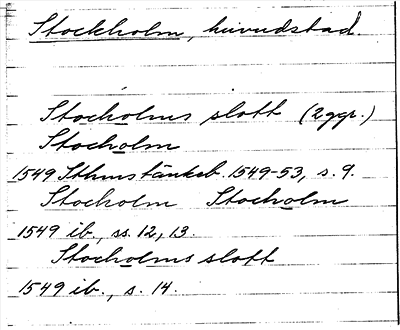 Stockholm, huvudstad
Stocholms slott (2 ggr.)
Stocholm
1549 Sthmstänkeb. 1549-53, s. 9.
Stocholm Stocholm
1549 ib., ss. 12, 13.
Stocholms slott
1549 ib., s. 14.